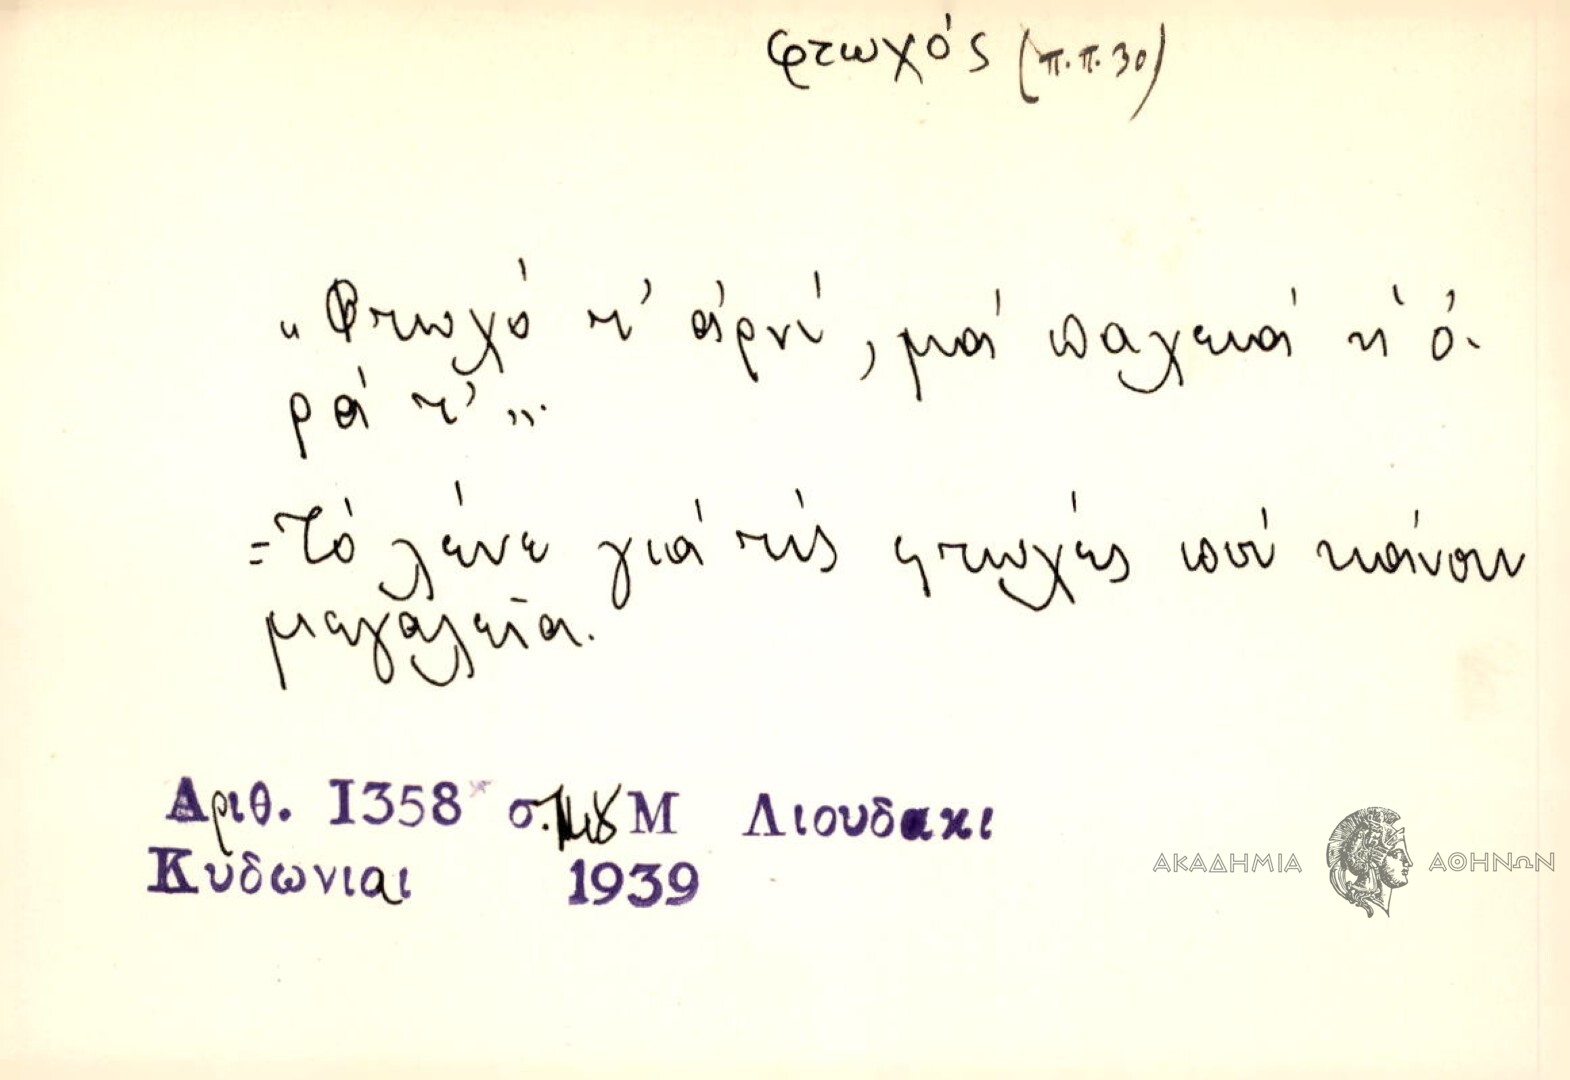 φτωχός (π.π. 30)
„Φτωχό τ' ἀρνί, μιά παχειά ἡ ὀ-
ρά τ'".
= Τό λένε γιά τίς φτωχές πού κάνουν
μεγαλεῖα.
Αριθ. 1358 σ. Μ Λιουδακι
Κυδωνιαι 1939
ΑΚΑΔΗΜΙΑ ΑΘΗΝΩΝ